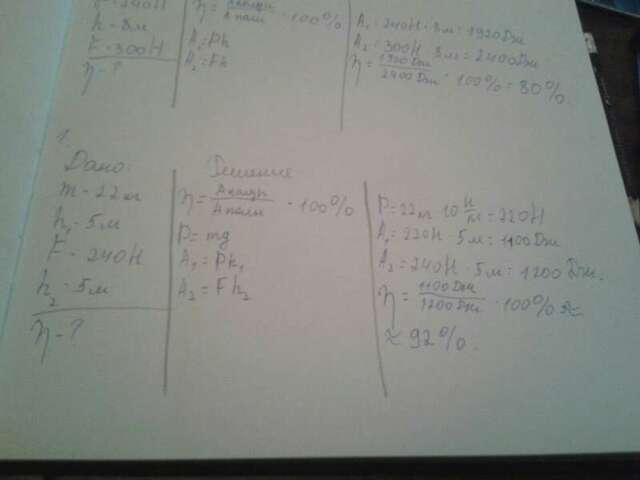 P-240Н
h-8м
F-300Н
η-?
η= Aполезн / Aполн · 100%
A₁=Ph
A₂=Fh
A₁=240Н·8м=1920Дж
A₂=300Н·8м=2400Дж
η= 1920Дж / 2400Дж · 100%=80%.
1.
Дано:
m-22кг
h₁-5м
F-240Н
h₂-5м
η-?
Решение
η= · 100%
P=mg
A₁=Ph₁
A₂=Fh₂
P=22кг·10 Н/кг=220Н
A₁=220Н·5м=1100Дж
A₂=240Н·5м=1200Дж.
η= 1100Дж / 1200Дж · 100%≈
≈92%.